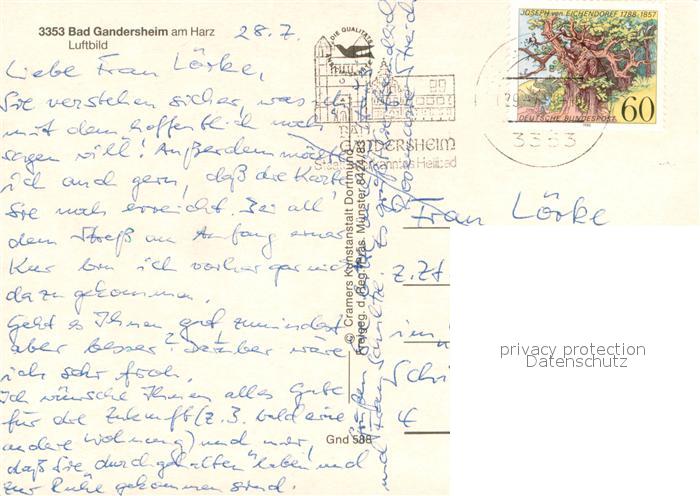 3353 Bad Gandersheim am Harz
Luftbild
28.7.
Liebe Frau Lörke,
Sie verstehen sicher, was ich
mit dem "hoffentlich noch"
sagen will! Außerdem möchte
ich auch gern, daß die Karte
Sie noch erreicht. Bei all
dem Streß am Anfang einer
Kur bin ich vorher gar nicht
dazu gekommen.
Geht es Ihnen gut, zumindest
aber besser? Darüber wäre
ich sehr froh.
Ich wünsche Ihnen alles Gute
für die Zukunft (z.B. bald eine
andere Wohnung) und mir,
daß Sie "durchgehalten" haben und
zur Ruhe gekommen sind.
und
© Cramers Kunstanstalt Dortmund
Freigeg. d. Reg. Präs. Münster 8424/83
Gnd 588
DIE QUALITÄT
BAD
GANDERSHEIM
Staatl. anerkanntes Heilbad
3353
JOSEPH von EICHENDORFF 1788-1857
60
DEUTSCHE BUNDESPOST
Frau Lörke
z.Zt.
im
Schi
privacy protection
Datenschutz